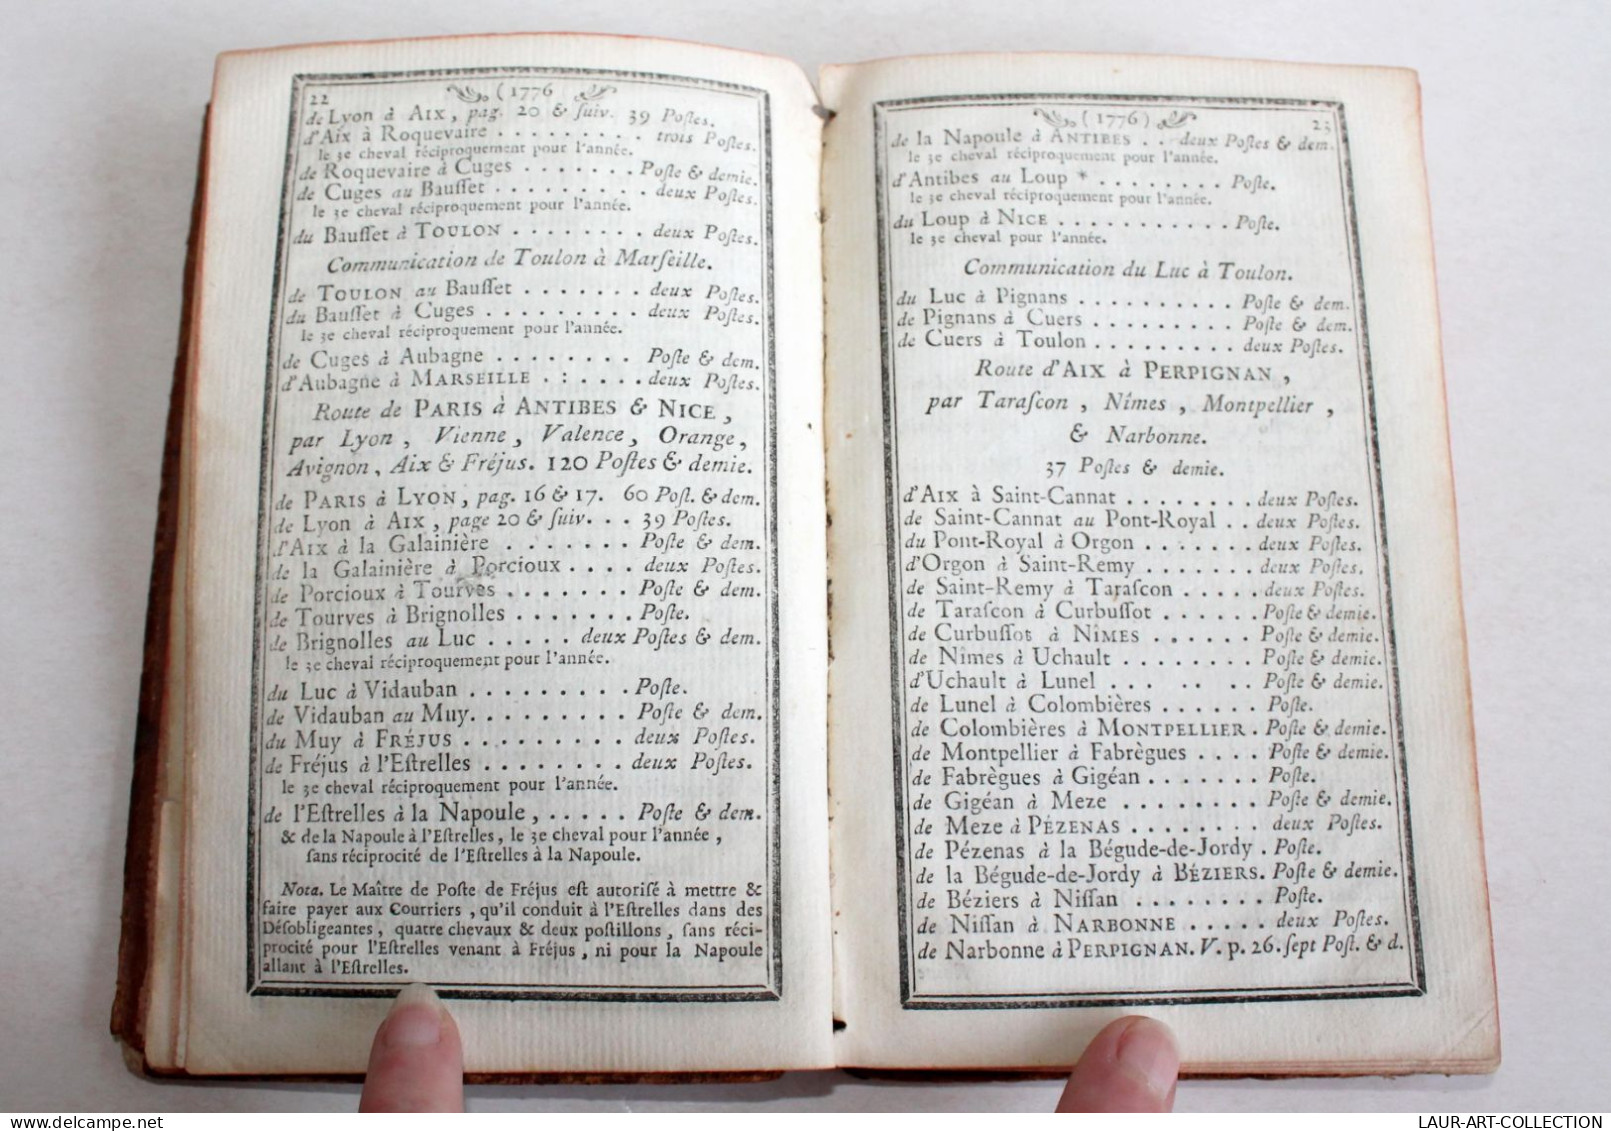 22 (1776
de Lyon à AIX, pag. 20 & ſuiv. 39 Poſtes.
d'Aix à Roquevaire . . . . . . . . . trois Poſtes.
le 3e cheval réciproquement pour l'année.
de Roquevaire à Cuges . . . . . . . Poſte & demie.
de Cuges au Bauſſet . . . . . . . . . deux Poſtes.
le 3e cheval réciproquement pour l'année.
du Bauſſet à TOULON . . . . . . . . deux Poſtes.
Communication de Toulon à Marſeille.
de TOULON au Bauſſet . . . . . . . deux Poſtes.
du Bauſſet à Cuges . . . . . . . . . deux Poſtes.
le 3e cheval réciproquement pour l'année.
de Cuges à Aubagne . . . . . . . . Poſte & dem.
d'Aubagne à MARSEILLE . : . . . . deux Poſtes.
Route de PARIS à ANTIBES & NICE,
par Lyon, Vienne, Valence, Orange,
Avignon, Aix & Fréjus. 120 Poſtes & demie.
de PARIS à LYON, pag. 16 & 17. 60 Poſt. & dem.
de Lyon à AIX, page 20 & ſuiv. . . 39 Poſtes.
d'Aix à la Galainière . . . . . . . Poſte & dem.
de la Galainière à Porcioux . . . . deux Poſtes.
de Porcioux à Tourves . . . . . . . Poſte & dem.
de Tourves à Brignolles . . . . . . Poſte.
de Brignolles au Luc . . . . . deux Poſtes & dem.
le 3e cheval réciproquement pour l'année.
du Luc à Vidauban . . . . . . . . . Poſte.
de Vidauban au Muy. . . . . . . . . Poſte & dem.
du Muy à FRÉJUS . . . . . . . . . deux Poſtes.
de Fréjus à l'Eſtrelles . . . . . . . . deux Poſtes.
le 3e cheval réciproquement pour l'année.
de l'Eſtrelles à la Napoule, . . . . . Poſte & dem.
& de la Napoule à l'Eſtrelles, le 3e cheval pour l'année,
ſans réciprocité de l'Eſtrelles à la Napoule.
Nota. Le Maître de Poſte de Fréjus eſt autoriſé à mettre &
faire payer aux Courriers, qu'il conduit à l'Eſtrelles dans des
Déſobligeantes, quatre chevaux & deux poſtillons, ſans réci-
procité pour l'Eſtrelles venant à Fréjus, ni pour la Napoule
allant à l'Eſtrelles.
(1776) 23
de la Napoule à ANTIBES . . deux Poſtes & dem.
le 3e cheval réciproquement pour l'année.
d'Antibes au Loup * . . . . . . . . Poſte.
le 3e cheval réciproquement pour l'année.
du Loup à NICE . . . . . . . . . . . Poſte.
le 3e cheval pour l'année.
Communication du Luc à Toulon.
du Luc à Pignans . . . . . . . . . . Poſte & dem.
de Pignans à Cuers . . . . . . . . . Poſte & dem.
de Cuers à Toulon . . . . . . . . . deux Poſtes.
Route d'AIX à PERPIGNAN,
par Taraſcon, Nîmes, Montpellier,
& Narbonne.
37 Poſtes & demie.
d'Aix à Saint-Cannat . . . . . . . . deux Poſtes.
de Saint-Cannat au Pont-Royal . . deux Poſtes.
du Pont-Royal à Orgon . . . . . . . deux Poſtes.
d'Orgon à Saint-Remy . . . . . . . deux Poſtes.
de Saint-Remy à Taraſcon . . . . . deux Poſtes.
de Taraſcon à Curbuſſot . . . . . . Poſte & demie.
de Curbuſſot à NÎMES . . . . . . Poſte & demie.
de Nîmes à Uchault . . . . . . . . Poſte & demie.
d'Uchault à Lunel . . . . . . . Poſte & demie.
de Lunel à Colombières . . . . . . Poſte.
de Colombières à MONTPELLIER . Poſte & demie.
de Montpellier à Fabrègues . . . . Poſte & demie.
de Fabrègues à Gigéan . . . . . . . Poſte.
de Gigéan à Meze . . . . . . . . Poſte & demie.
de Meze à PÉZENAS . . . . . . . . deux Poſtes.
de Pézenas à la Bégude-de-Jordy . Poſte.
de la Bégude-de-Jordy à BÉZIERS. Poſte & demie.
de Béziers à Niſſan . . . . . . . . Poſte.
de Niſſan à NARBONNE . . . . . deux Poſtes.
de Narbonne à PERPIGNAN. V. p. 26. ſept Poſt. & d.
LAUR-ART-COLLECTION